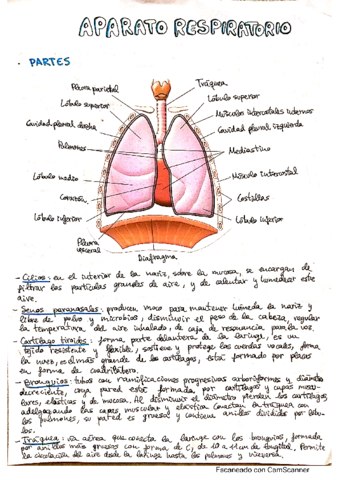 APARATO RESPIRATORIO
· PARTES
Pleura parietal
Tráquea
Lóbulo superior
Lóbulo superior
Músculos intercostales internos
Cavidad pleural derecha
Cavidad pleural izquierda
Pulmones
Mediastino
Lóbulo medio
Músculo intercostal
Corazón
Costillas
Lóbulo inferior
Lóbulo inferior
Pleura
visceral
Diafragma
- Cilios: en el interior de la nariz, sobre la mucosa, se encargan de
filtrar las partículas grandes de aire, y de calentar y humedecer este
aire.
- Senos paranasales: producen moco para mantener húmeda la nariz y
libre de polvo y microbios, disminuir el peso de la cabeza, regular
la temperatura del aire inhalado, de caja de resonancia para la voz.
- Cartílago tiroides: forma parte delantera de la laringe, es un
tejido resistente y flexible, sostiene y protege las cuerdas vocales, forma
la nuez, es el más grande de los cartílagos, está formado por placas
en forma de cuadrilátero.
- Bronquios: tubos con ramificaciones progresivas arboriformes y diámetro
decreciente, cuya pared está formada por cartílagos y capas muscu-
lares, elásticas y de mucosa. Al disminuir el diámetro pierden los cartílagos
adelgazando las capas muscular y elástica conectan la tráquea con
los pulmones, su pared es gruesa y contiene anillos divididos por
- Tráquea: vía aérea que conecta la laringe con los bronquios, formada
por anillos más gruesos con forma de C, de 10 a 11 cm de longitud. Permite
la circulación del aire desde la laringe hasta los pulmones y viceversa.
Escaneado con CamScanner